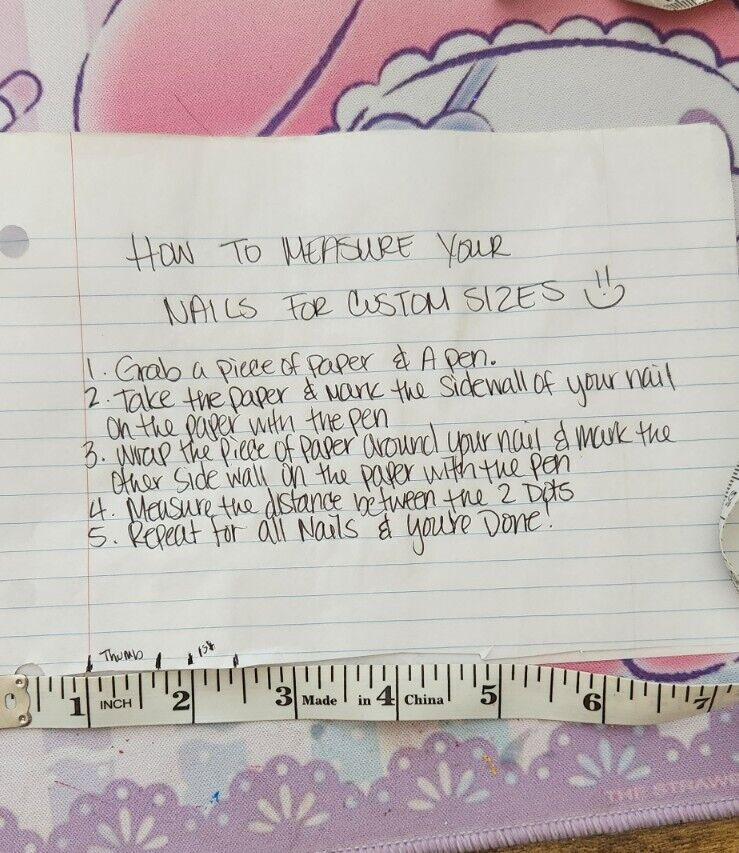 HOW TO MEASURE YOUR
NAILS FOR CUSTOM SIZES
1. Grab a piece of paper & A pen.
2. Take the paper & Mark the sidewall of your nail
on the paper with the pen
3. Wrap the piece of paper around your nail & mark the
other side wall on the paper with the pen
4. Measure the distance between the 2 Dots
5. Repeat for all Nails & you're Done!
Thumb 1st
1 INCH 2 3 Made in 4 China 5 6 7
THE STRAW